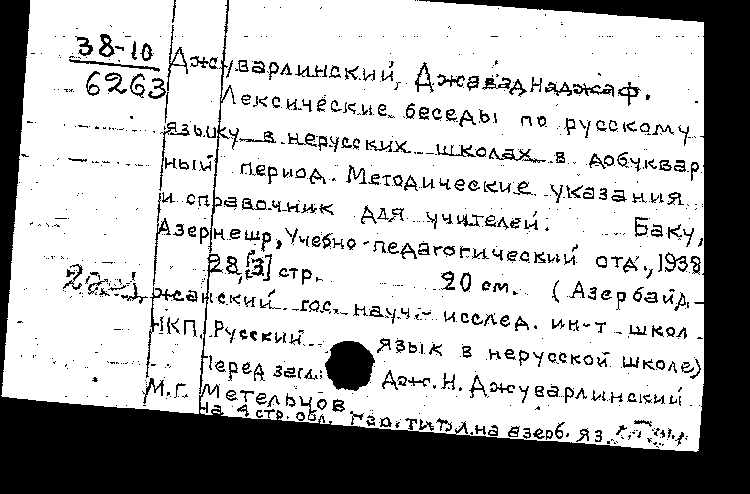 38-10
6263
Джуварлинский, Джавад Наджаф.
Лексические беседы по русскому
языку в нерусских школах в добуквар
ный период. Методические указания
и справочник для учителей. Баку,
Азернешр, Учебно-педагогический отд., 1938
28,[3] стр. 20 см. (Азербайд-
жанский гос. научн.-исслед. ин-т школ
НКП. Русский язык в нерусской школе)
Перед загл.: Дж. Н. Джуварлинский
М.Г. Метельцов
На 4 стр. обл. пар. титул. на азерб. яз.